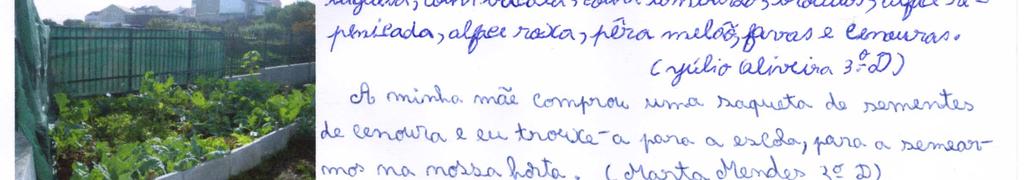 penicada, alface roxa, pêra melão, favas e cenouras.
(Júlio Oliveira 3º D)
A minha mãe comprou uma saqueta de sementes
de cenoura e eu trouxe-a para a escola, para a semear-
mos na nossa horta. (Marta Mendes 3º D)